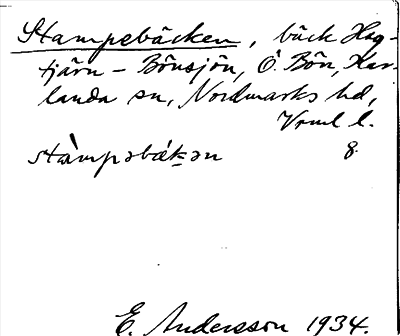 Stampebäcken, bäck Hag-
tjärn - Bönsjön, Ö. Bön, Kar-
landa sn, Nordmarks hd,
Vrml l.
stàmpəbäkən 8
E. Andersson 1934.